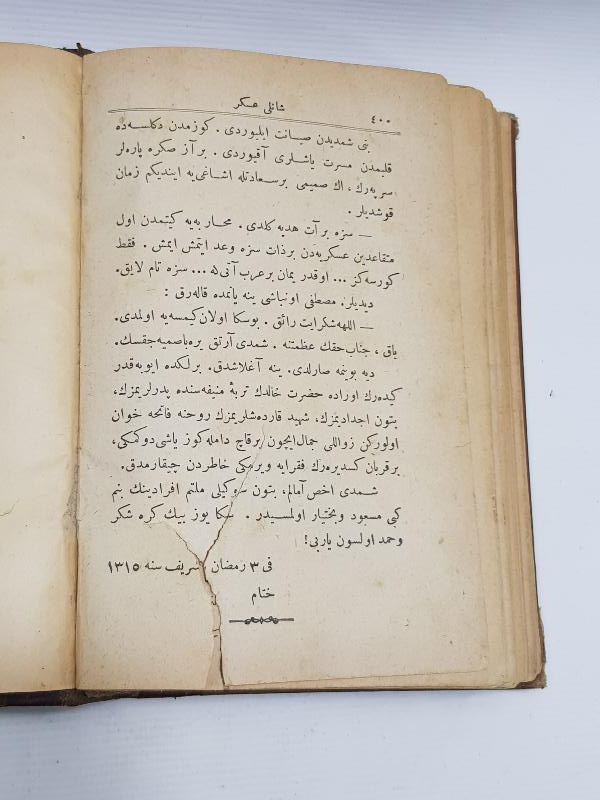 ٤٠٠
شانلی عسكر
بنی شمدیدن صیانت ایلیوردی . كوزمدن دكلسه‌ده
قلبمدن مسرت یاشلری آقیوردی . بر آز صكره پاره‌لر
سرپه‌رك، اك صمیمی بر سعادتله اشاغی‌یه ایندیكم زمان
قوشدیلر .
— سزه بر آت هدیه كلدی . محاربه‌یه كیتمدن اول
متقاعدین عسكریه‌دن بر ذات سزه وعد ایتمش ایمش . فقط
كورسه‌كز ... اوقدر یمان بر عرب آتی‌كه ... سزه تام لایق.
دیدیلر. مصطفی اونباشی ینه یانمده قاله‌رق :
— اللهه شكر ایت رائق . بوسكا اولان كیمسه‌یه اولمدی.
باق ، جناب حقك عظمتنه . شمدی آرتق یره باصمیه‌جقسك.
دیه بوینمه صارلدی. ینه آغلاشدق. برلكده ایوبه قدر
كیده‌رك اوراده حضرت خالدك تربهٔ منیفه‌سنده پدرلریمزك،
بتون اجدادیمزك، شهید قارده‌شلریمزك روحنه فاتحه خوان
اولوركن زواللی جمال ایچون برقاچ دامله كوز یاشی دوكمكی،
بر قربان كسدیره‌رك فقرایه ویرمكی خاطردن چیقارمدق.
شمدی اخص آمالم، بتون سوكیلی ملتم افرادینك بنم
كبی مسعود وبختیار اولمسیدر . سكا یوز بیك كره شكر
وحمد اولسون یاربی!
فی ٣ رمضان شریف سنه ١٣١٥
ختام